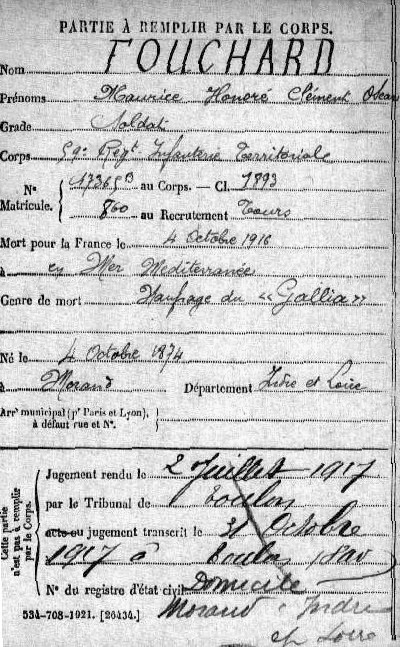 PARTIE À REMPLIR PAR LE CORPS.
Nom FOUCHARD
Prénoms Maurice Honoré Clément Oscar
Grade Soldat
Corps 59e Regt Infanterie Territoriale
No Matricule. 17365B au Corps. — Cl. 1893
860 au Recrutement Tours
Mort pour la France le 4 Octobre 1916
à en Mer Mediterranée
Genre de mort Naufrage du "Gallia"
Né le 4 Octobre 1874
à Morand Département Indre et Loire
Arrt municipal (pr Paris et Lyon), à défaut rue et No.
Cette partie n'est pas à remplir par le Corps.
Jugement rendu le 2 Juillet 1917
par le Tribunal de Toulon
acte ou jugement transcrit le 31 Octobre
1917 à Toulon Var
No du registre d'état civil Domicile
534-708-1921. [26434.] Morand Indre
et Loire